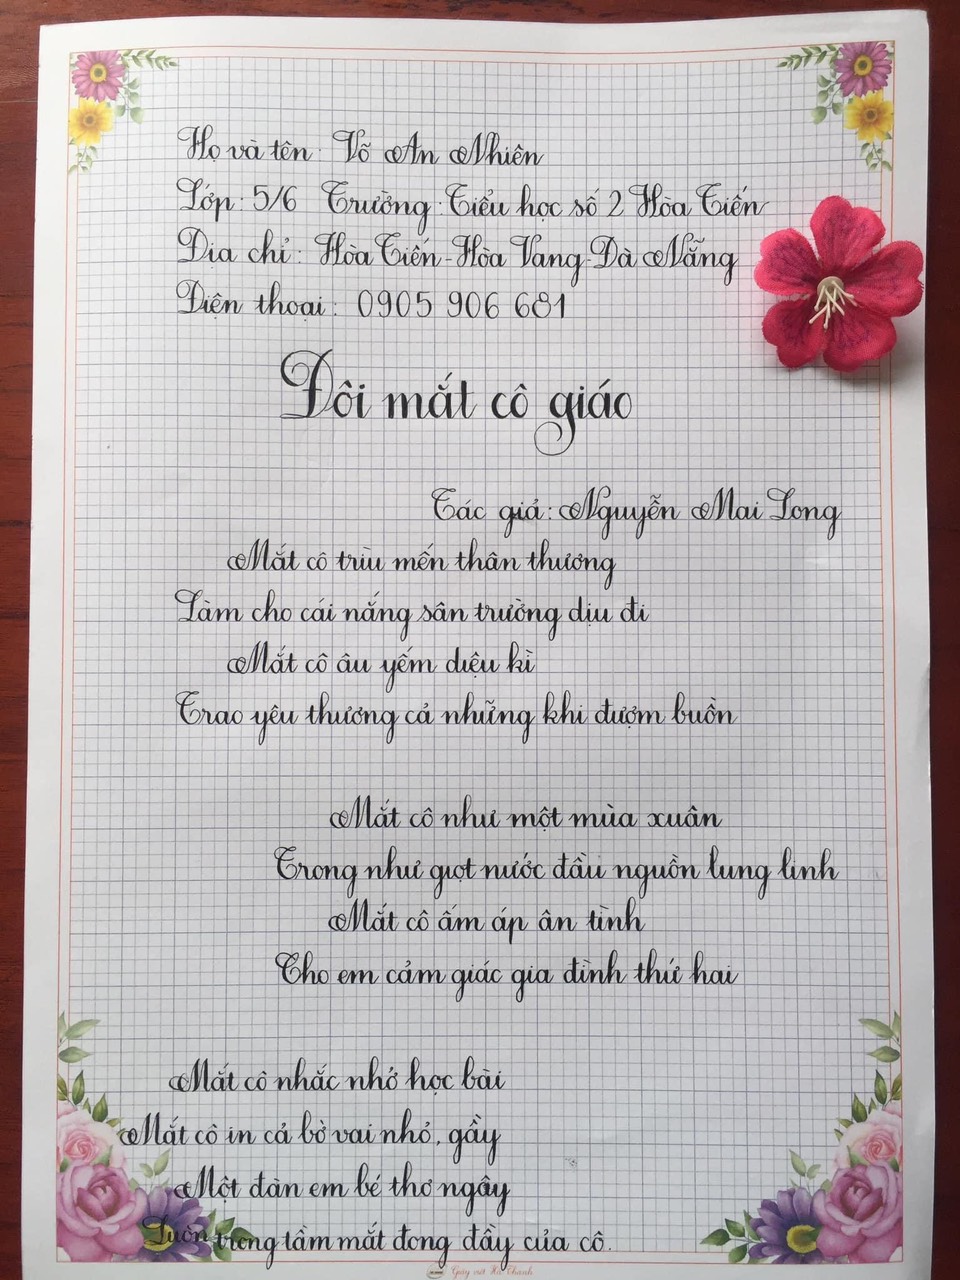 Họ và tên: Võ An Nhiên
Lớp: 5/6 Trường: Tiểu học số 2 Hòa Tiến
Địa chỉ: Hòa Tiến - Hòa Vang - Đà Nẵng
Điện thoại: 0905 906 681
Đôi mắt cô giáo
Tác giả: Nguyễn Mai Long
Mắt cô trìu mến thân thương
Làm cho cái nắng sân trường dịu đi
Mắt cô âu yếm diệu kì
Trao yêu thương cả những khi đượm buồn
Mắt cô như một mùa xuân
Trong như giọt nước đầu nguồn lung linh
Mắt cô ấm áp ân tình
Cho em cảm giác gia đình thứ hai
Mắt cô nhắc nhở học bài
Mắt cô in cả bờ vai nhỏ, gầy
Một đàn em bé thơ ngây
Luôn trong tầm mắt đong đầy của cô.
Giấy viết Hà Thanh